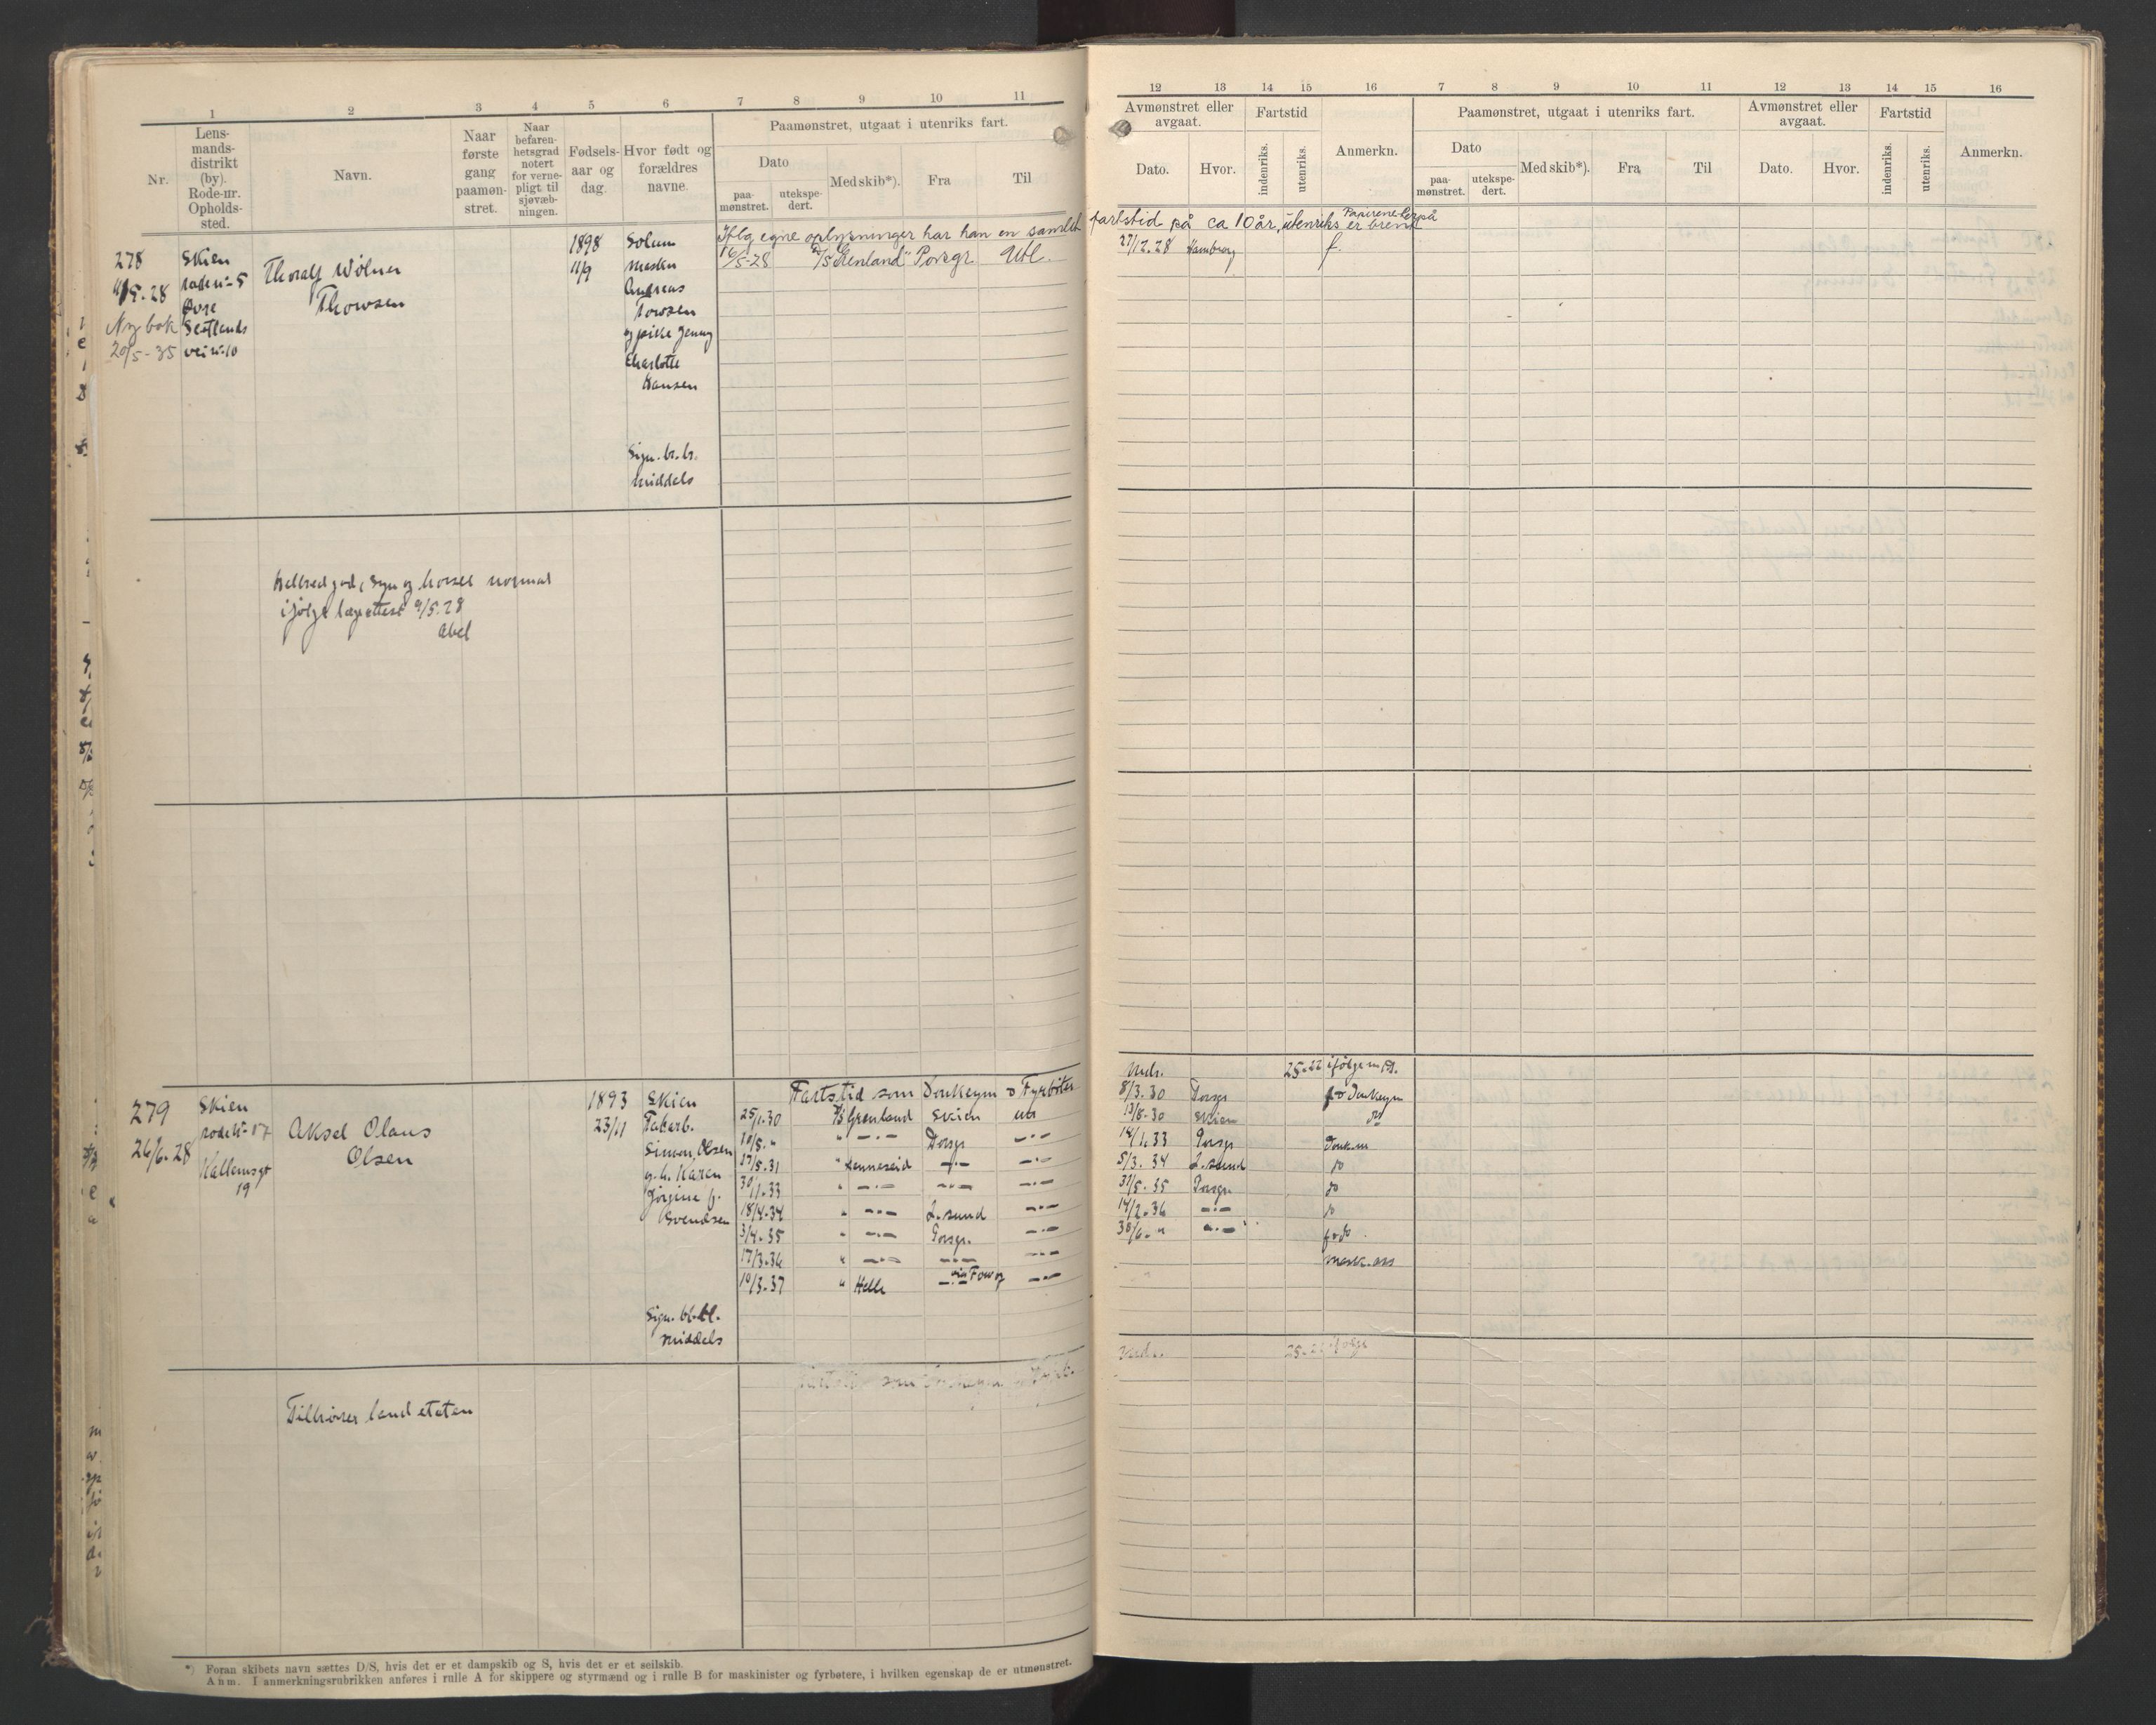 1 2 3 4 5 6 7 8 9 10 11
Nr.
Lens-
mands-
distrikt
(by).
Rode-nr.
Opholds-
sted.
Navn.
Naar
første
gang
paamøn-
stret.
Naar
befaren-
hetsgrad
notert
for verne-
pligt til
sjøvæb-
ningen.
Fødsels-
aar og
dag.
Hvor født og
forældres
navne.
Paamønstret, utgaat i utenriks fart.
Dato
paa-
mønstret.
utekspe-
dert.
Med skib*).
Fra
Til
278
11/5.28
Ny bok
20/5-35
Skien
rode nr. 5
Sectlands
vei nr. 10
Thoralf Wölner
Thowsen
1898
11/9
Solum
Andreas
Towsen
og pike Jenny
Charlotte
Hansen
Sign. br. br.
middels
Iflg egne oplysninger har han en samlet
16/5-28 D/S "Grenland" Porsgr. Utl.
Helbred god, syn og hørsel normal
ifølge lægeattest 9/5.28
Abel
279
26/6.28
Skien
rode nr. 17
19
Aksel Olaus
Olsen
1893
23/11
Skien
Fabarb.
Simon Olsen
g. h. Karen
Jørgine f.
Svendsen
Sign. bl. bl.
middels
Fartstid som Donkeym o Fyrbøter
25/1.30 D/S Grenland Skien utr
10/5. " " —·— Porsgr —·—
17/5.31 " Henneseid —·— —·—
30/11.33 " —·— —·— —·—
18/4.34 " —·— L.sund —·—
3/4.35 " —·— Porsgr. —·—
17/3.36 " —·— —·— —·—
10/3.37 " Helle —·— —·—
Tilhører landetaten
*) Foran skibets navn sættes D/S, hvis det er et dampskib og S, hvis det er et seilskib.
Anm. I anmerkningsrubrikken anføres i rulle A for skippere og styrmænd og i rulle B for maskinister og fyrbøtere, i hvilken egenskap de er utmønstret.
12 13 14 15 16 7 8 9 10 11 12 13 14 15 16
Avmønstret eller
avgaat.
Dato.
Hvor.
Fartstid
indenriks.
utenriks.
Anmerkn.
Paamønstret, utgaat i utenriks fart.
Dato
paa-
mønstret.
utekspe-
dert.
Med skib*).
Fra
Til
Avmønstret eller
avgaat.
Dato.
Hvor.
Fartstid
indenriks.
utenriks.
Anmerkn.
fartstid på ca 10 år, utenriks Papirene herpå er brent
27/12.28 Hamburg f.
25-22 ifølge
8/3.30 Porsgr f o Donkeym
13/8.30 Skien do
14/1.33 Porsgr Donkm
5/3.34 L.sund do
31/5.35 Porsgr do
14/2.36 —·— do
30/6. " —·— f o do
mask.ass
25-22 ifølge